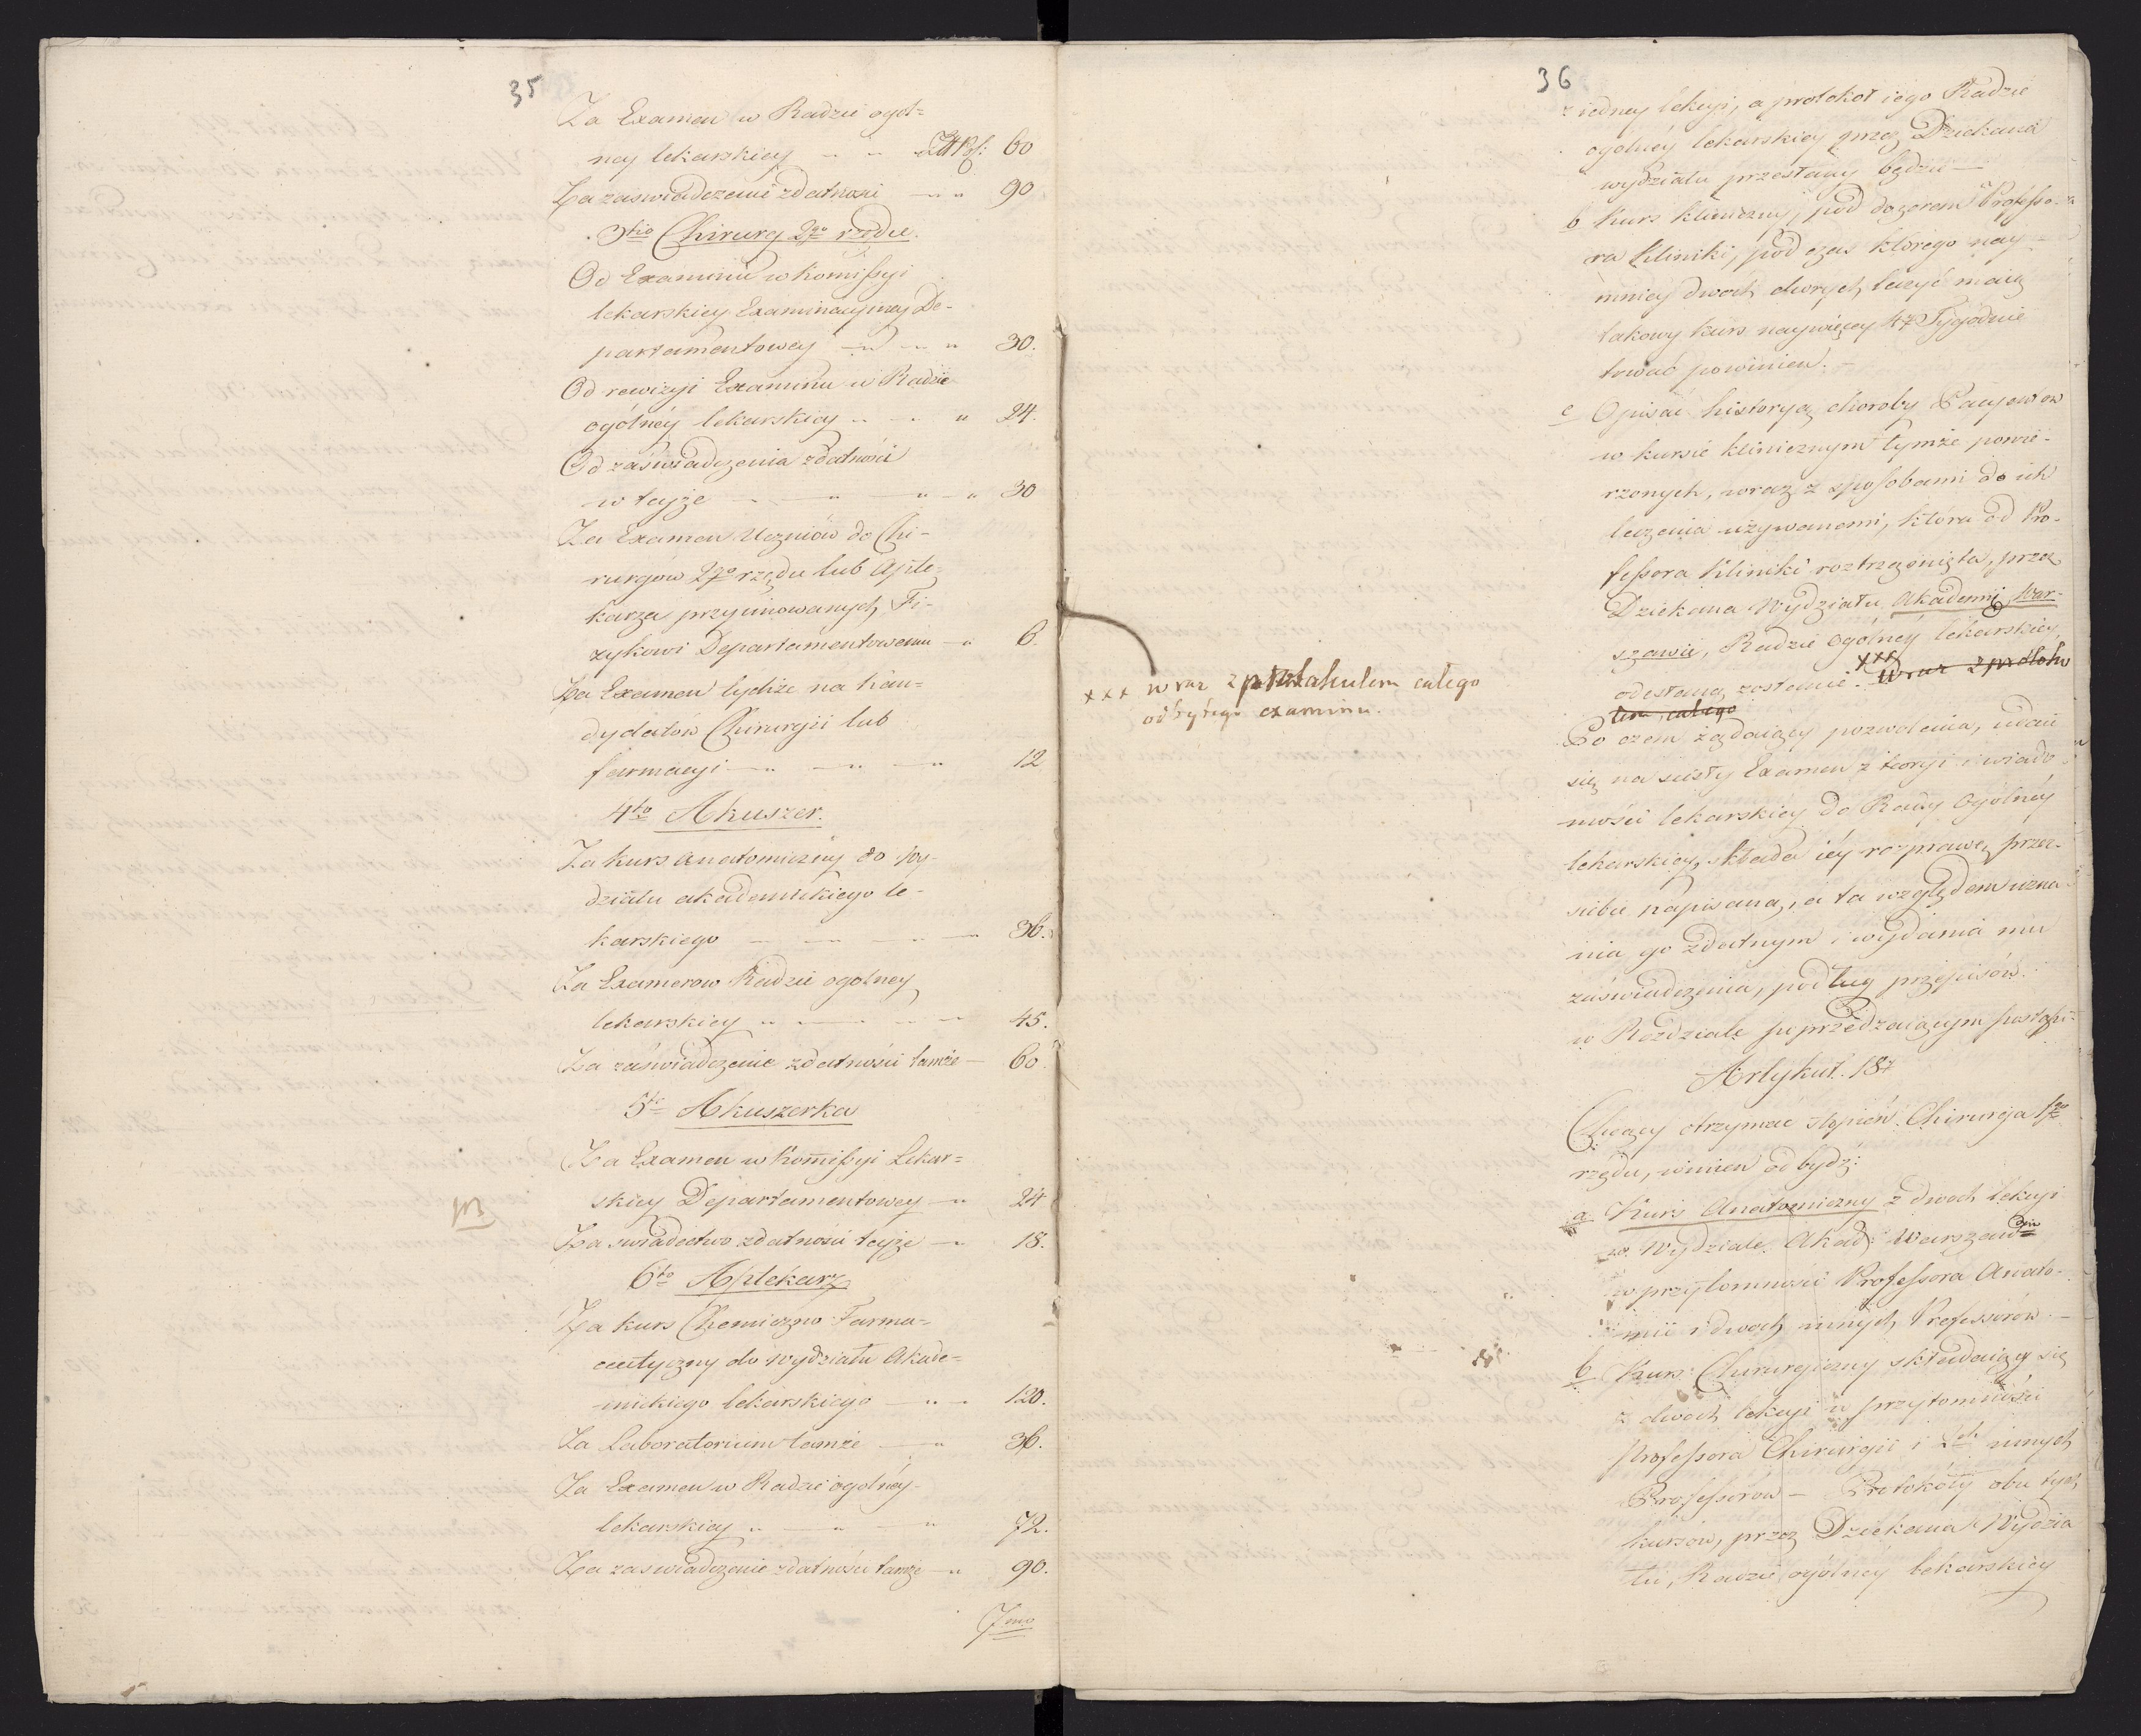 35
Za Examen w Radzie ogól=
ney lekarskiey „ „ Zł Pol: 60
Za zaswiadczenie zdatności — „ „ 90
3tio Chirurg 2go rzędu.
Od Examinu w Komissyi
lekarskiey Examinacyiney De-
partamentowey — „ — „ 30.
Od rewizyi Examinu w Radzie
ogólnéy lekarskiey „ — „ 24.
Od zaświadczenia zdatności
w teyże — „ — „ — „ 30
Za Examen Uczniów do Chi-
rurgów 2go rzędu lub Apte-
karza przyimowanych, Fi-
zykowi Departamentowemu — „ 6.
Za Examen tychże na Kan-
dydatów Chirurgii lub
farmacyi — „ — „ — „ 12
4to Akuszer.
Za kurs anatomiczny do wy-
działu akademickiego le-
karskiego — „ — „ — „ 36.
Za Examen w Radzie ogolney
lekarskiey „ — „ — „ 45.
Za zaświadczenie zdatności tamże — 60.
5to Akuszerka
Za Examen w Komissyi Lekar=
skiey Departamentowey — „ 24
Za swiadectwo zdatności teyże — „ 18.
6to Aptekarz
Za kurs Chemiczno Farma=
ceutyczny do wydziału Akade=
mickiego lekarskiego — „ — 120.
Za Laboratorium tamże — „ 36.
Za Examen w Radzie ogólnéy
lekarskiey „ — „ — „ 72.
Za zaswiadczenie zdatności tamże — „ 90.
7mo
36
z iedney lekcyi, a protokoł iego Radzie
ogólnéy lekarskiey przez Dziekana
wydziału przesłany będzie —
b Kurs kliniczny, pod dozorem Professo-
ra Kliniki, pod czas którego nay-
mniey dwóch chorych, leczyć maią
takowy kurs naywięcey 4ry Tygodnie
trwać powinien. —
c Opisać historyą choroby Pacyentów
w kursie klinicznym tymże powie-
rzonych, wraz z sposobami do ich
leczenia używanemi, która od Pro-
fessora Kliniki roztrząśnięta, przez
Dziekana Wydziału Akademij War-
szawie, Radzie ogólnéy lekarskiey
odesłaną zostanie. xxx wraz z protoku
łem całego
xxx wraz z protokułem całego
odbytego examinu.
Po czem żądaiący pozwolenia, udaie
się na ścisły Examen z teoryi i wiado-
mości lekarskiey do Rady Ogólnéy
lekarskiey, składa iéy rozprawę przez
siebie napisaną, a ta względem uzna-
nia go zdatnym i wydania mu
zaświadczenia, podług przepisów
w Rozdziale poprzedzaiącym postąpi
Artykuł. 18ty
Chcący otrzymać stopień Chirurga 1go
rzędu, winien odbydź:
a Kurs Anatomiczny z dwoch lekcyi
w Wydziale Akad: Warszaw
w przytomności Professora Anato-
mii i dwoch innych Professorów —
b Kurs Chirurgiczny składaiący się
z dwoch lekcyi w przytomności
Professora Chirurgii i 2ch innych
Professorów — Protokóły obu tych
kursów, przez Dziekana Wydzia
łu, Radzie ogólnéy lekarskiey